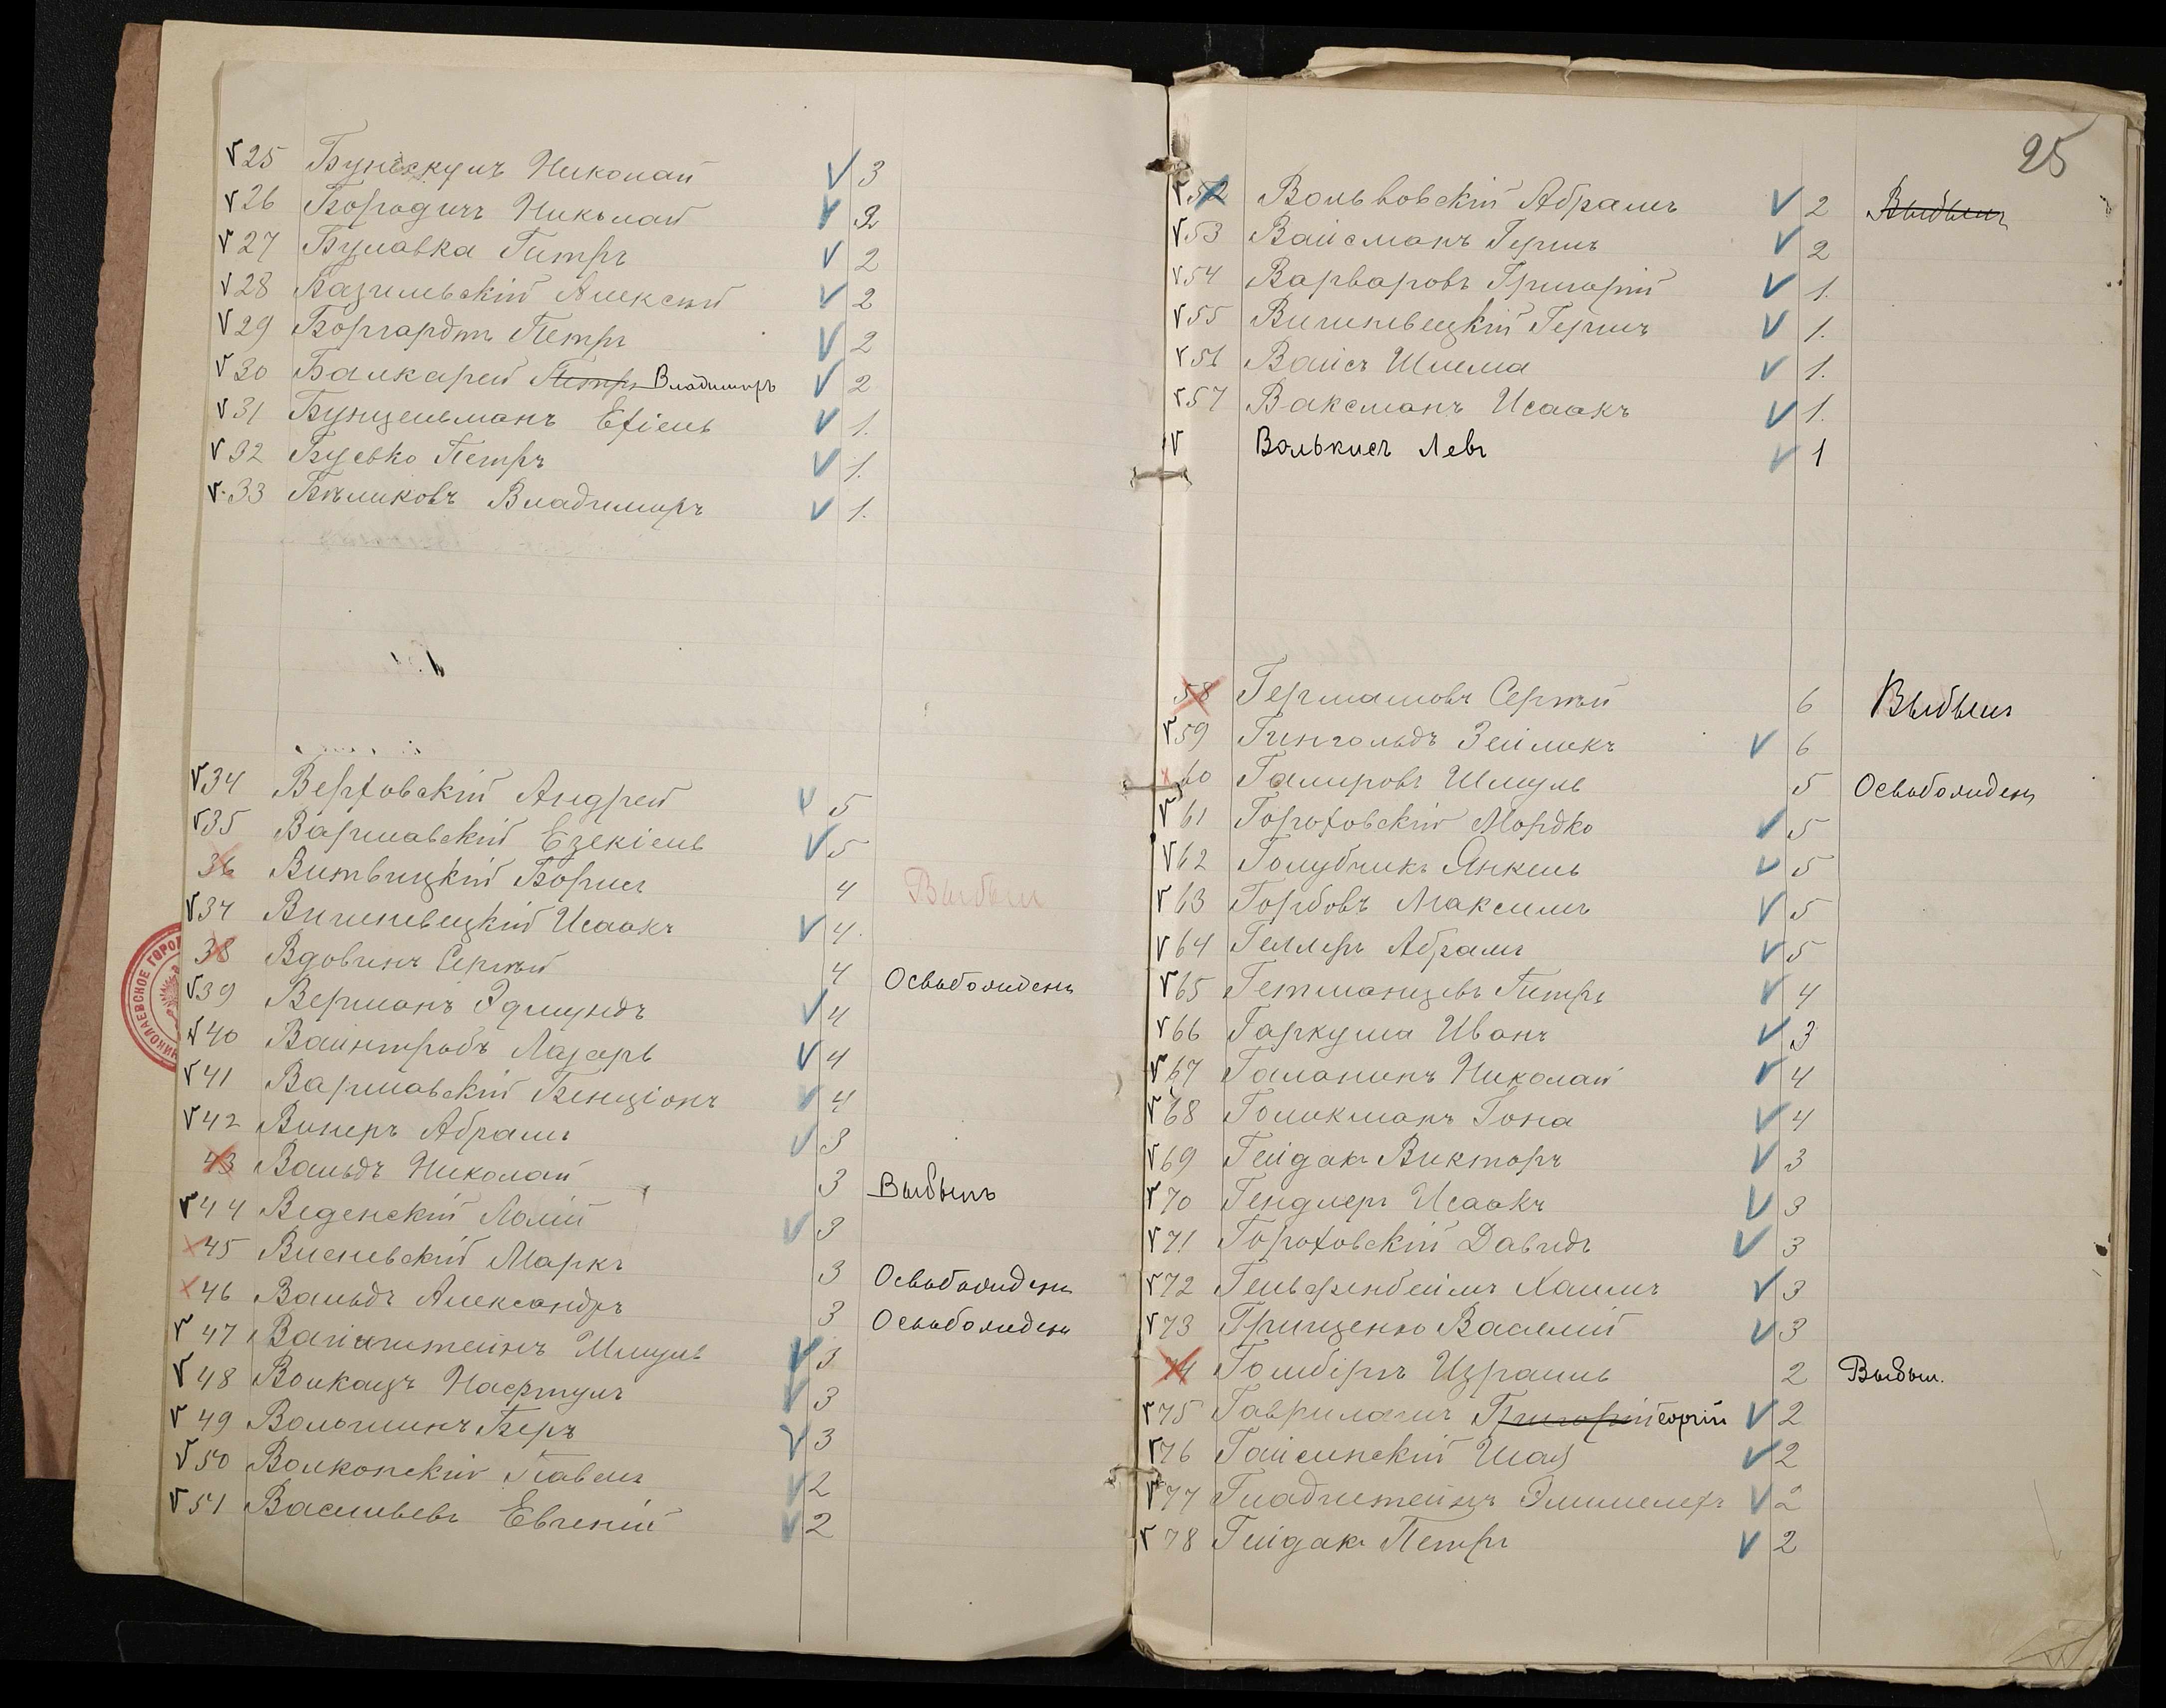 25 Бунескулъ Николай 3
26 Бородичъ Николай 2
27 Булавка Петръ 2
28 Базилевскій Алексѣй 2
29 Боргардтъ Петръ 2
30 Балкарей Петръ Владимиръ 2
31 Бунцельманъ Ехіель 1.
32 Бусько Петръ 1.
33 Бѣликовъ Владимиръ 1.
34 Верховскій Андрей 5
35 Варшавскій Езекіель 5
36 Витвицкій Борисъ 4 Выбылъ
37 Вишневецкій Исаакъ 4.
38 Вдовинъ Сергѣй 4 Освобожденъ
39 Верманъ Эдмундъ 4
40 Вайнтробъ Лазарь 4
41 Варшавскій Бенціонъ 4
42 Винеръ Абрамъ 3
43 Вальдъ Николай 3 Выбылъ
44 Веденскій 3
45 Висневскій Маркъ 3 Освобожденъ
46 Вальдъ Александръ 3 Освобожденъ
47 Вайнштейнъ Шмуль 3
48 Волкацъ Нафтулъ 3
49 Вологинъ Беръ 3
50 Волконскій Павелъ 2
51 Васильевъ Евгеній 2
НИКОЛАЕВСКОЕ ГОРОД
25
52 Вольвовскій Абрамъ 2 Выбылъ
53 Вайсманъ Гершъ 2
54 Варваровъ Григорій 1.
55 Вишневецкій Гершъ 1.
56 Вайсъ Шлема 1.
57 Ваксманъ Исаакъ 1.
Волькисъ Левъ 1
58 Germановъ Сергѣй 6 Выбылъ
59 Гингольдъ Зейликъ 6
60 Галперовъ Шмуль 5 Освобожденъ
61 Гороховскій Мордко 5
62 Голубчикъ Янкель 5
63 Горбовъ Максимъ 5
64 Геллеръ Абрамъ 5
65 Гетманцевъ Петръ 4
66 Гаркуша Иванъ 3
67 Галанинъ Николай 4
68 Голикманъ Іона 4
69 Гейдакъ Викторъ 3
70 Гендлеръ Исаакъ 3
71 Гороховскій Давидъ 3
72 Гельфенбеймъ Хаимъ 3
73 Грищенко Василій 3
74 Голибіръ Израиль 2 Выбыл.
75 Гавриловичъ Григорій Георгій 2
76 Гайсинскій Шая 2
77 Гладштейнъ Элимелехъ 2
78 Гейдакъ Петръ 2